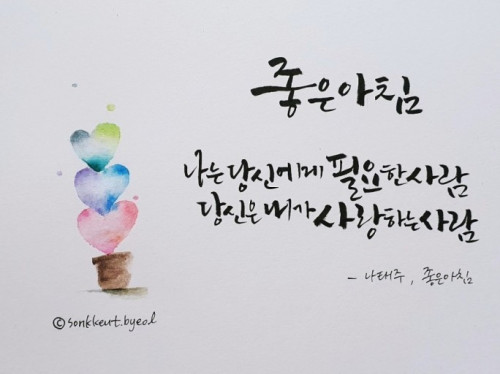 좋은아침
나는당신에게 필요한사람
당신은 내가 사랑하는사람
- 나태주, 좋은아침
©sonkkeut.byeol